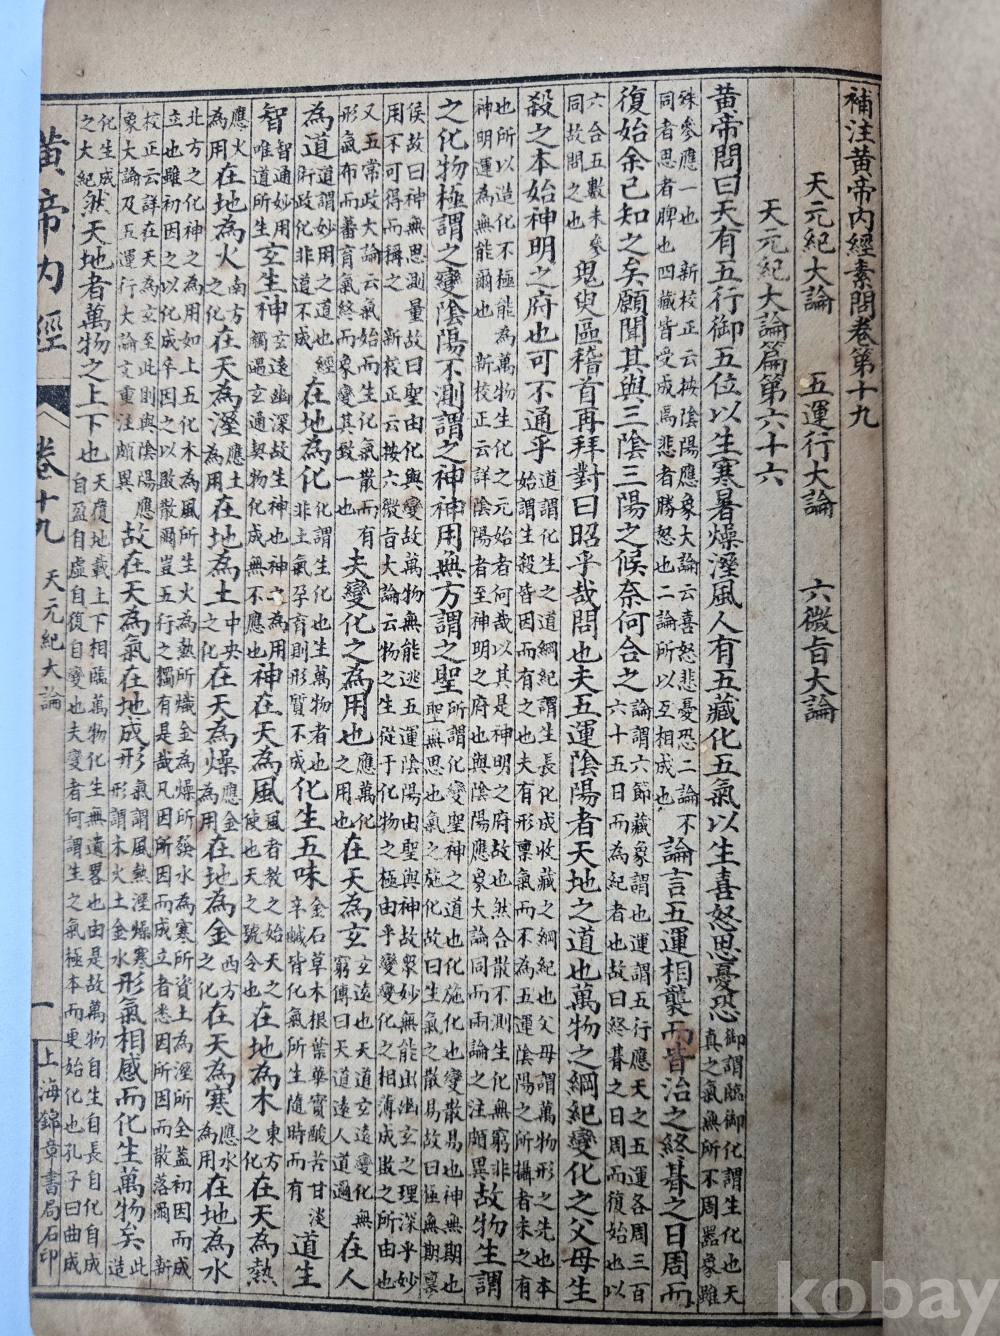 補注黃帝內經素問卷第十九
天元紀大論 五運行大論 六微旨大論
天元紀大論篇第六十六
黃帝問曰天有五行御五位以生寒暑燥溼風人有五藏化五氣以生喜怒思憂恐御謂臨御化謂生化也天真之氣無所不周器象雖
殊參應一也 新校正云按陰陽應象大論云喜怒悲憂恐二論不同者思者脾也四藏皆受成焉悲者勝怒也二論所以互相成也論言五運相襲而皆治之終朞之日周而
復始余已知之矣願聞其與三陰三陽之候奈何合之論謂六節藏象謂也運謂五行應天之五運各周三百六十五日而為紀者也故曰終朞之日周而復始也以
六合五數未參同故問之也鬼臾區稽首再拜對曰昭乎哉問也夫五運陰陽者天地之道也萬物之綱紀變化之父母生
殺之本始神明之府也可不通乎道謂化生之道綱紀謂生長化成收藏之綱紀也父母謂萬物形之先也本始謂生殺皆因而有之也夫有形稟氣而不為五運陰陽之所攝者未之有
也所以造化不極能為萬物生化之元始者何哉以其是神明之府故也然合散不測生化無窮非神明運為無能爾也 新校正云詳陰陽者至神明之府也與陰陽應象大論同而兩論之注頗異故物生謂
之化物極謂之變陰陽不測謂之神神用無方謂之聖所謂化變聖神之道也化施化也變散易也神無期也聖無思也氣之施化故曰生氣之散易故曰極無期稟
侯故曰神無思測量故曰聖由化與變故萬物無能逃五運陰陽由聖與神故眾妙無能出幽玄之理深乎妙用不可得而稱之 新校正云按六微旨大論云物之生從于化物之極由乎變變化之相薄成敗之所由也
又五常政大論云氣始而生化氣散而有形氣布而蕃育氣終而象變其致一也夫變化之為用也應萬化之用也在天為玄玄遠也天道玄遠變化無窮傳曰天道遠人道邇在人
為道道謂妙用之道也經術政化非道不成在地為化化謂生化也生萬物者也非土氣孕育則形質不成化生五味金石草木根葉華實酸苦甘淡辛鹹皆化氣所生隨時而有道生
智智通妙用唯道所生玄生神玄遠幽深故生神也神之為用觸遇玄通契物化成無不應也神在天為風風者教之始天之使也天之號令也在地為木東方之化在天為熱
應火為用在地為火南方之化在天為溼應土為用在地為土中央之化在天為燥應金為用在地為金西方之化在天為寒應水為用在地為水
北方之化神之為用如上五化木為風所生火為熱所熾金為燥所發水為寒所資土為溼所全蓋初因而成立也雖初因之以化成卒因之以敗散爾豈五行之獨有是哉凡因所因而成立者悉因所因而散落爾 新
校正云詳在天為玄至此則與陰陽應象大論及五運行大論文重注頗異故在天為氣在地成形氣謂風熱溼燥寒形謂木火土金水形氣相感而化生萬物矣此造
化生成之大紀然天地者萬物之上下也天覆地載上下相臨萬物化生無遺畧也由是故萬物自生自長自化自成自盈自虛自復自變也夫變者何謂生之氣極本而更始化也孔子曰曲成
黃帝內經 卷十九 天元紀大論 一 上海錦章書局石印
kobay